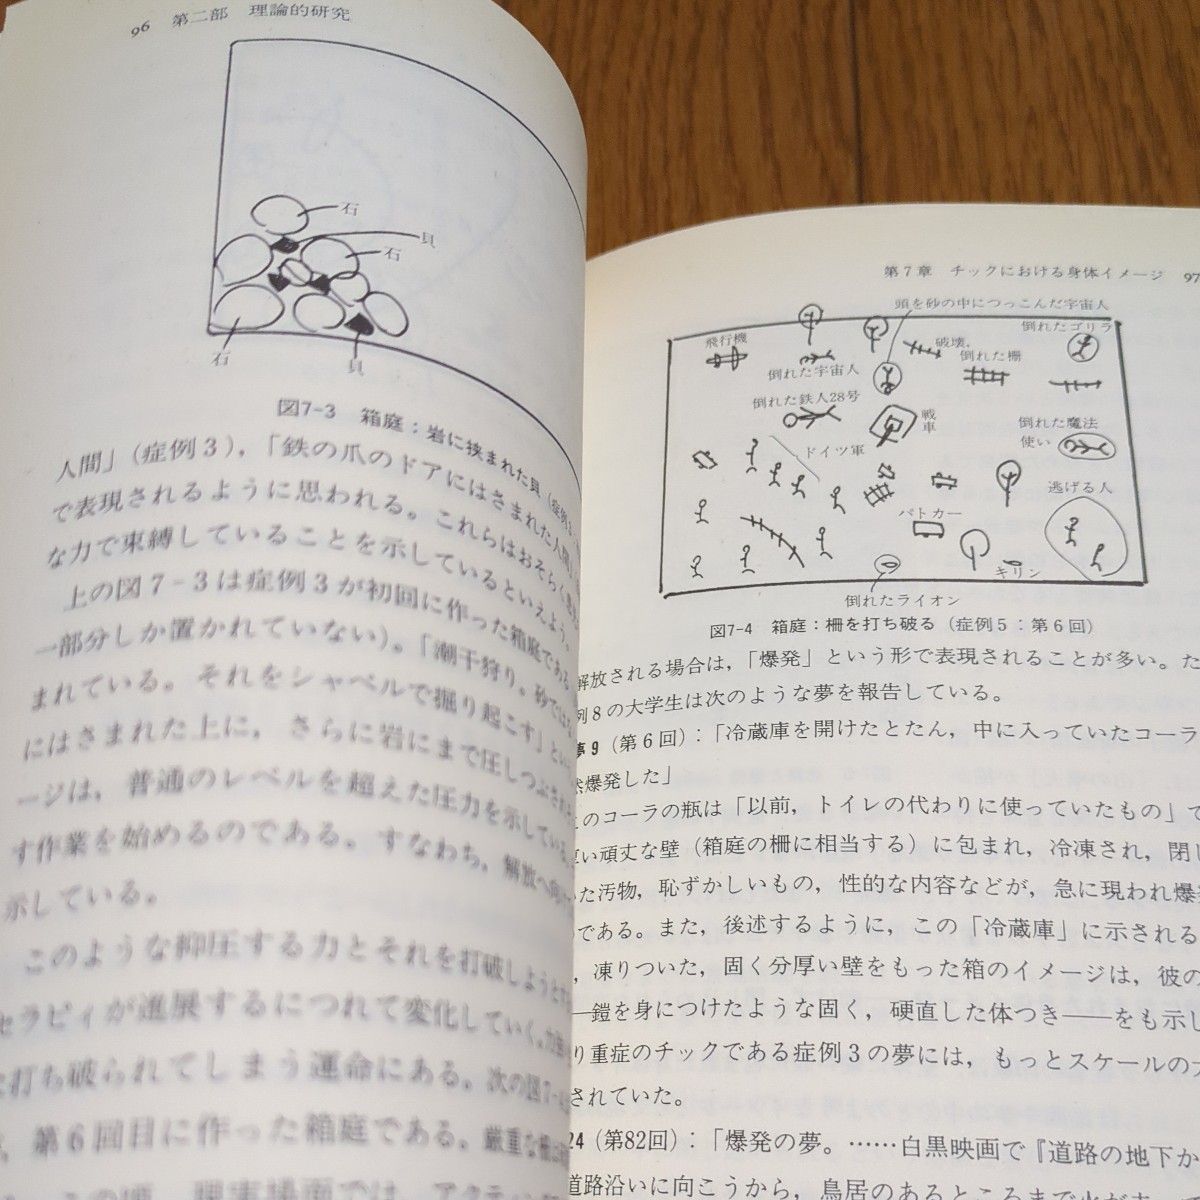 96 第二部 理論的研究
石
貝
石
石
貝
図7-3 箱庭：岩に挟まれた貝（症例3
人間」（症例3），「鉄の爪のドアにはさまれた人間
で表現されるように思われる。これらはおそらく
な力で束縛していることを示しているといえよう。
上の図7-3は症例3が初回に作った箱庭である
一部分しか置かれていない）。「潮干狩り。砂では
まれている。それをシャベルで掘り起こす」とい
にはさまれた上に，さらに岩にまで圧しつぶされ
ージは，普通のレベルを超えた圧力を示している
す作業を始めるのである。すなわち，解放へ向
示している。
このような抑圧する力とそれを打破しようと
セラピィが進展するにつれて変化していく。力
打ち破られてしまう運命にある。次の図7-
，第6回目に作った箱庭である。厳重な
この頃，現実場面では，アクティン
第7章 チックにおける身体イメージ 97
頭を砂の中につっこんだ宇宙人
飛行機
破壊，
倒れたゴリラ
倒れた宇宙人
倒れた柵
倒れた鉄人28号
戦車
倒れた魔法使い
ドイツ軍
逃げる人
パトカー
キリン
倒れたライオン
図7-4 箱庭：柵を打ち破る（症例5：第6回）
解放される場合は，「爆発」という形で表現されることが多い。た
例8の大学生は次のような夢を報告している。
夢9（第6回）：「冷蔵庫を開けたとたん，中に入っていたコーラ
然爆発した」
このコーラの瓶は「以前，トイレの代わりに使っていたもの」で
い頑丈な壁（箱庭の柵に相当する）に包まれ，冷凍され，閉じ
た汚物，恥ずかしいもの，性的な内容などが，急に現われ爆発
である。また，後述するように，この「冷蔵庫」に示される
，凍りついた，固く分厚い壁をもった箱のイメージは，彼の
―鎧を身につけたような固く，硬直した体つき――をも示し
り重症のチックである症例3の夢には，もっとスケールの大
されていた。
24（第82回）：「爆発の夢。……白黒映画で『道路の地下か
道路沿いに向こうから，鳥居のあるところまで火が